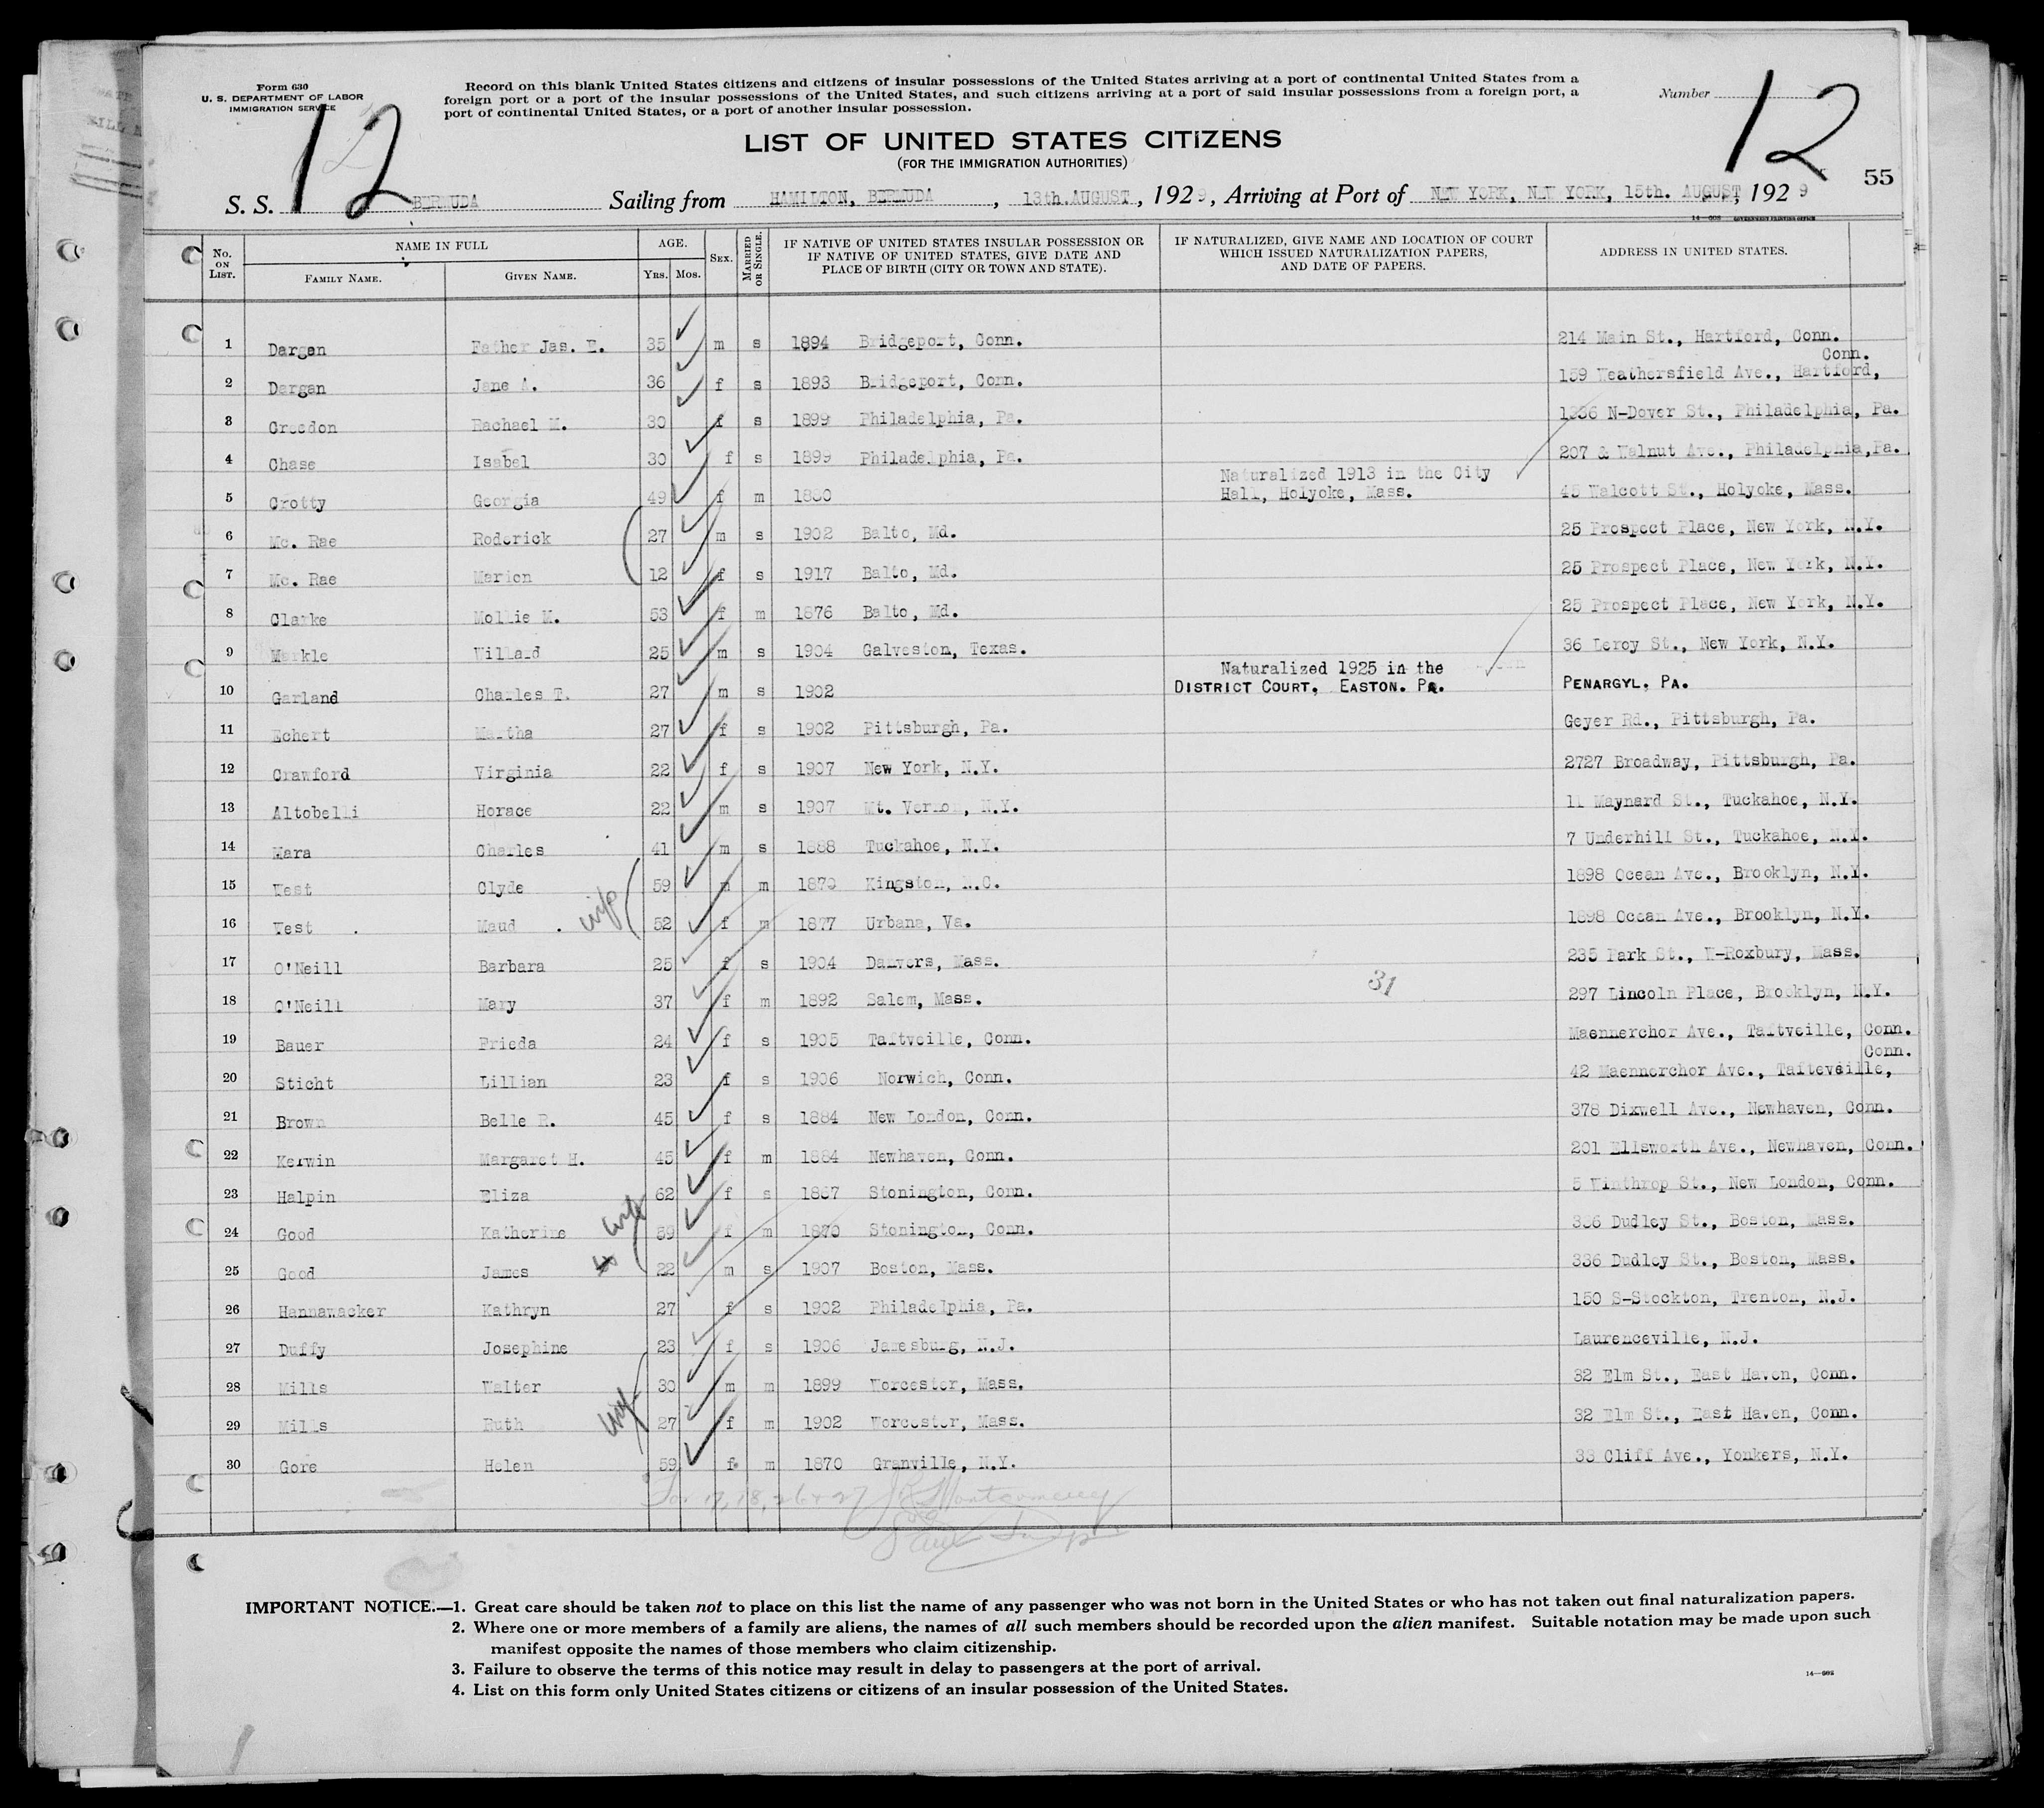 Form 630
U. S. DEPARTMENT OF LABOR
IMMIGRATION SERVICE
Record on this blank United States citizens and citizens of insular possessions of the United States arriving at a port of continental United States from a
foreign port or a port of the insular possessions of the United States, and such citizens arriving at a port of said insular possessions from a foreign port, a
port of continental United States, or a port of another insular possession.
Number 12
12
LIST OF UNITED STATES CITIZENS
(FOR THE IMMIGRATION AUTHORITIES)
55
S. S. BERMUDA Sailing from HAMILTON, BERMUDA, 13th. AUGUST, 1929, Arriving at Port of NEW YORK, NEW YORK, 15th. AUGUST, 1929
14—608 GOVERNMENT PRINTING OFFICE
No. ON LIST. NAME IN FULL FAMILY NAME. GIVEN NAME. AGE. YRS. MOS. SEX. MARRIED OR SINGLE. IF NATIVE OF UNITED STATES INSULAR POSSESSION OR IF NATIVE OF UNITED STATES, GIVE DATE AND PLACE OF BIRTH (CITY OR TOWN AND STATE). IF NATURALIZED, GIVE NAME AND LOCATION OF COURT WHICH ISSUED NATURALIZATION PAPERS, AND DATE OF PAPERS. ADDRESS IN UNITED STATES.
1 Dargan Father Jas. E. 35 m s 1894 Bridgeport, Conn. 214 Main St., Hartford, Conn.
2 Dargan Jane A. 36 f s 1893 Bridgeport, Conn. 159 Weathersfield Ave., Hartford, Conn.
3 Creedon Rachael M. 30 f s 1899 Philadelphia, Pa. 1336 N-Dover St., Philadelphia, Pa.
4 Chase Isabel 30 f s 1899 Philadelphia, Pa. 207 & Walnut Ave., Philadelphia, Pa.
5 Crotty Georgia 49 f m 1880 Naturalized 1913 in the City Hall, Holyoke, Mass. 45 Walcott St., Holyoke, Mass.
6 Mc. Rae Roderick 27 m s 1902 Balto, Md. 25 Prospect Place, New York, N.Y.
7 Mc. Rae Marion 12 f s 1917 Balto, Md. 25 Prospect Place, New York, N.Y.
8 Clarke Mollie M. 53 f m 1876 Balto, Md. 25 Prospect Place, New York, N.Y.
9 Markle Willard 25 m s 1904 Galveston, Texas. 36 Leroy St., New York, N.Y.
10 Garland Charles T. 27 m s 1902 Naturalized 1925 in the DISTRICT COURT, EASTON. PA. PENARGYL, PA.
11 Echert Martha 27 f s 1902 Pittsburgh, Pa. Geyer Rd., Pittsburgh, Pa.
12 Crawford Virginia 22 f s 1907 New York, N.Y. 2727 Broadway, Pittsburgh, Pa.
13 Altobelli Horace 22 m s 1907 Mt. Vernon, N.Y. 11 Maynard St., Tuckahoe, N.Y.
14 Mara Charles 41 m s 1888 Tuckahoe, N.Y. 7 Underhill St., Tuckahoe, N.Y.
15 West Clyde 59 m m 1870 Kingston, N.C. 1898 Ocean Ave., Brooklyn, N.Y.
16 West Maud wife 52 f m 1877 Urbana, Va. 1898 Ocean Ave., Brooklyn, N.Y.
17 O'Neill Barbara 25 f s 1904 Danvers, Mass. 235 Park St., W-Roxbury, Mass.
31
18 O'Neill Mary 37 f m 1892 Salem, Mass. 297 Lincoln Place, Brooklyn, N.Y.
19 Bauer Frieda 24 f s 1905 Taftveille, Conn. Maennerchor Ave., Taftveille, Conn.
20 Sticht Lillian 23 f s 1906 Norwich, Conn. 42 Maennerchor Ave., Tafteveille, Conn.
21 Brown Belle R. 45 f s 1884 New London, Conn. 378 Dixwell Ave., Newhaven, Conn.
22 Kerwin Margaret H. 45 f m 1884 Newhaven, Conn. 201 Ellsworth Ave., Newhaven, Conn.
23 Halpin Eliza 62 f s 1867 Stonington, Conn. 5 Winthrop St., New London, Conn.
24 Good Katherine wife 59 f m 1870 Stonington, Conn. 336 Dudley St., Boston, Mass.
25 Good James 22 m s 1907 Boston, Mass. 336 Dudley St., Boston, Mass.
26 Hannawacker Kathryn 27 f s 1902 Philadelphia, Pa. 150 S-Stockton, Trenton, N.J.
27 Duffy Josephine 23 f s 1906 Jamesburg, N.J. Laurenceville, N.J.
28 Mills Walter 30 m m 1899 Worcester, Mass. 32 Elm St., East Haven, Conn.
29 Mills Ruth wife 27 f m 1902 Worcester, Mass. 32 Elm St., East Haven, Conn.
30 Gore Helen 59 f m 1870 Granville, N.Y. 33 Cliff Ave., Yonkers, N.Y.
17, 18, 26 + 27 Montgomery
IMPORTANT NOTICE.—1. Great care should be taken not to place on this list the name of any passenger who was not born in the United States or who has not taken out final naturalization papers.
2. Where one or more members of a family are aliens, the names of all such members should be recorded upon the alien manifest. Suitable notation may be made upon such
manifest opposite the names of those members who claim citizenship.
3. Failure to observe the terms of this notice may result in delay to passengers at the port of arrival.
14—608
4. List on this form only United States citizens or citizens of an insular possession of the United States.